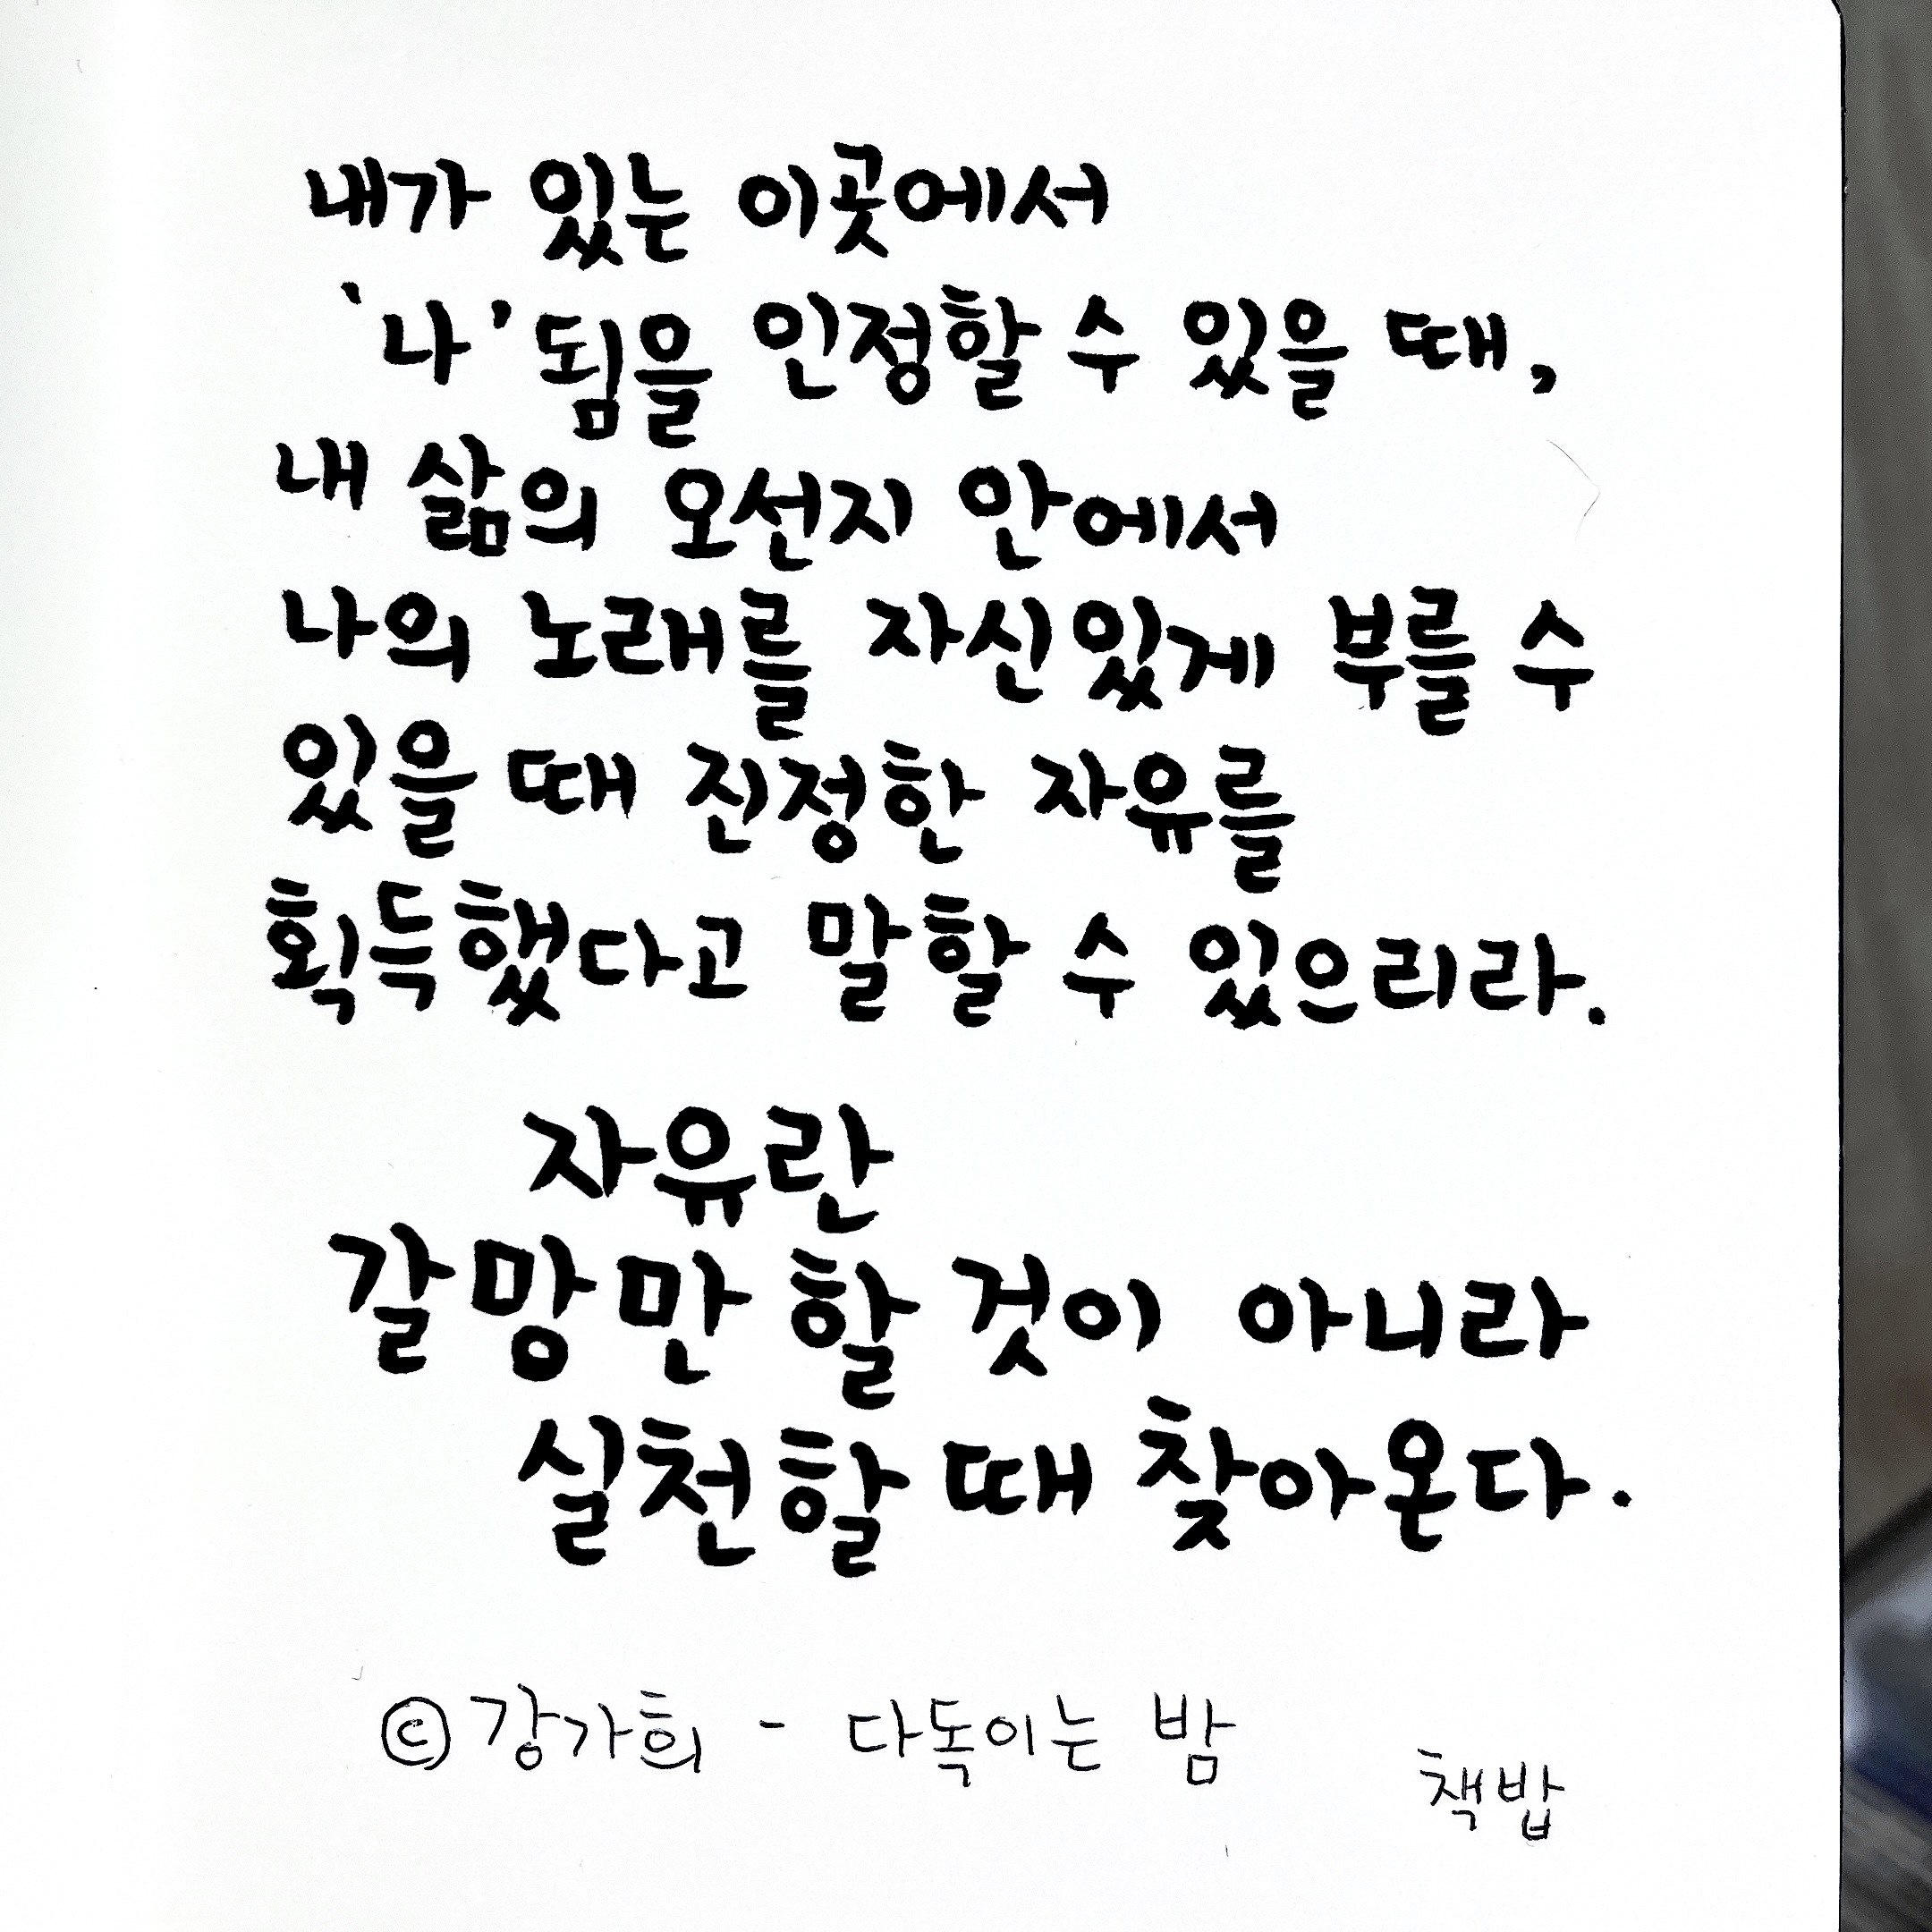 내가 있는 이곳에서
'나'됨을 인정할 수 있을 때,
내 삶의 오선지 안에서
나의 노래를 자신있게 부를 수
있을 때 진정한 자유를
획득했다고 말할 수 있으리라.
자유란
갈망만 할 것이 아니라
실천할 때 찾아온다.
©강가희 - 다독이는 밤
책밥